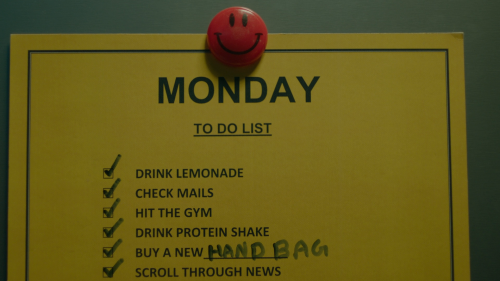 MONDAY
TO DO LIST
DRINK LEMONADE
CHECK MAILS
HIT THE GYM
DRINK PROTEIN SHAKE
BUY A NEW HAND BAG
SCROLL THROUGH NEWS